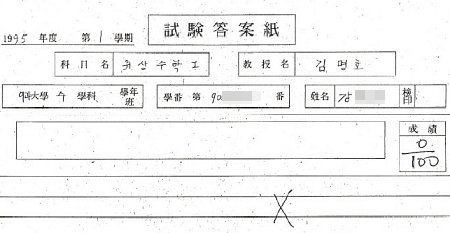 1995 年度 第 1 學期 試驗答案紙
科目名 위상수학 I 教授名 김명호
大學 수 學科 學年 班 學番 第 90 番 姓名 강 檢印
成績
0
100
X